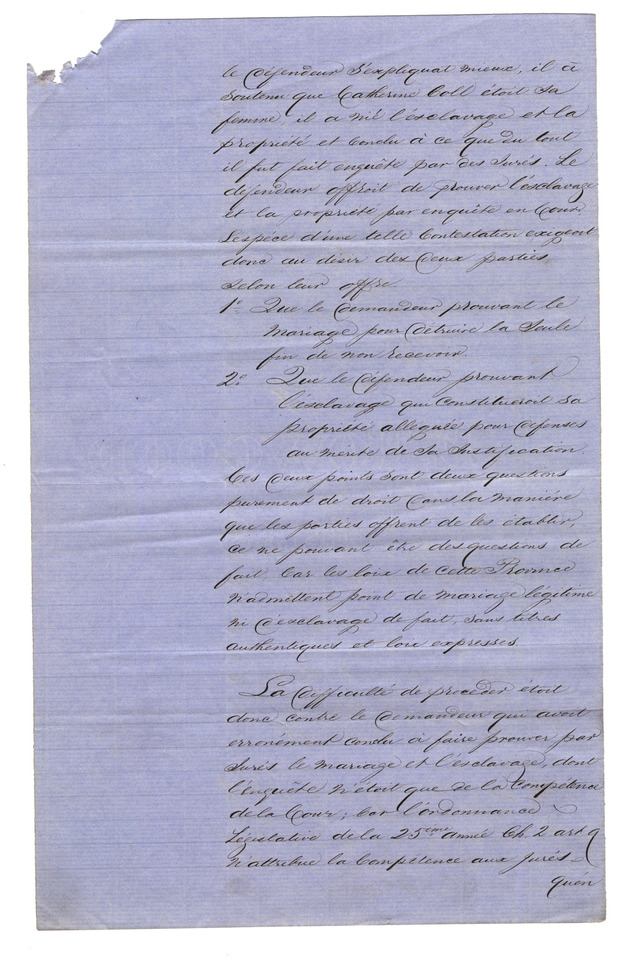 le défendeur s'expliquat mieux, il a
soutenu que Catherine Coll étoit sa
femme, il a nié l'esclavage et la
propriété et Conclu à ce que du tout
il fut fait enquête par des Jurés. Le
défendeur offroit de prouver l'esclavage
et la propriété par enquête en Cour.
L'espéce d'une telle Contestation exigeoit
donc au désir des deux parties
selon leur offre.
1.° Que le demandeur prouvant le
Mariage pour détruire la Seule
fin de non recevoir.
2.° Que le défendeur prouvant
l'esclavage qui Constitueroit Sa
propriété alleguée pour défenses
au mérite de Sa Justification.
Ces deux points sont deux questions
purement de droit dans la Maniére
que les parties offrent de les établir,
ce ne pouvant être des questions de
fait, Car les loix de cette Province
N'admettent point de Mariage légitime
ni d'esclavage de fait, sans titres
authentiques et loix expresses.
La difficulté de proceder étoit
donc contre le demandeur qui avoit
erronément conclu à faire prouver par
Jurés le mariage et l'esclavage, dont
l'enquête n'étoit que de la Compétence
de la Cour; Car l'ordonnance
Législative de la 25ème année Ch. 2 art 9
N'attribue la Compétence aux jurés
qu'en